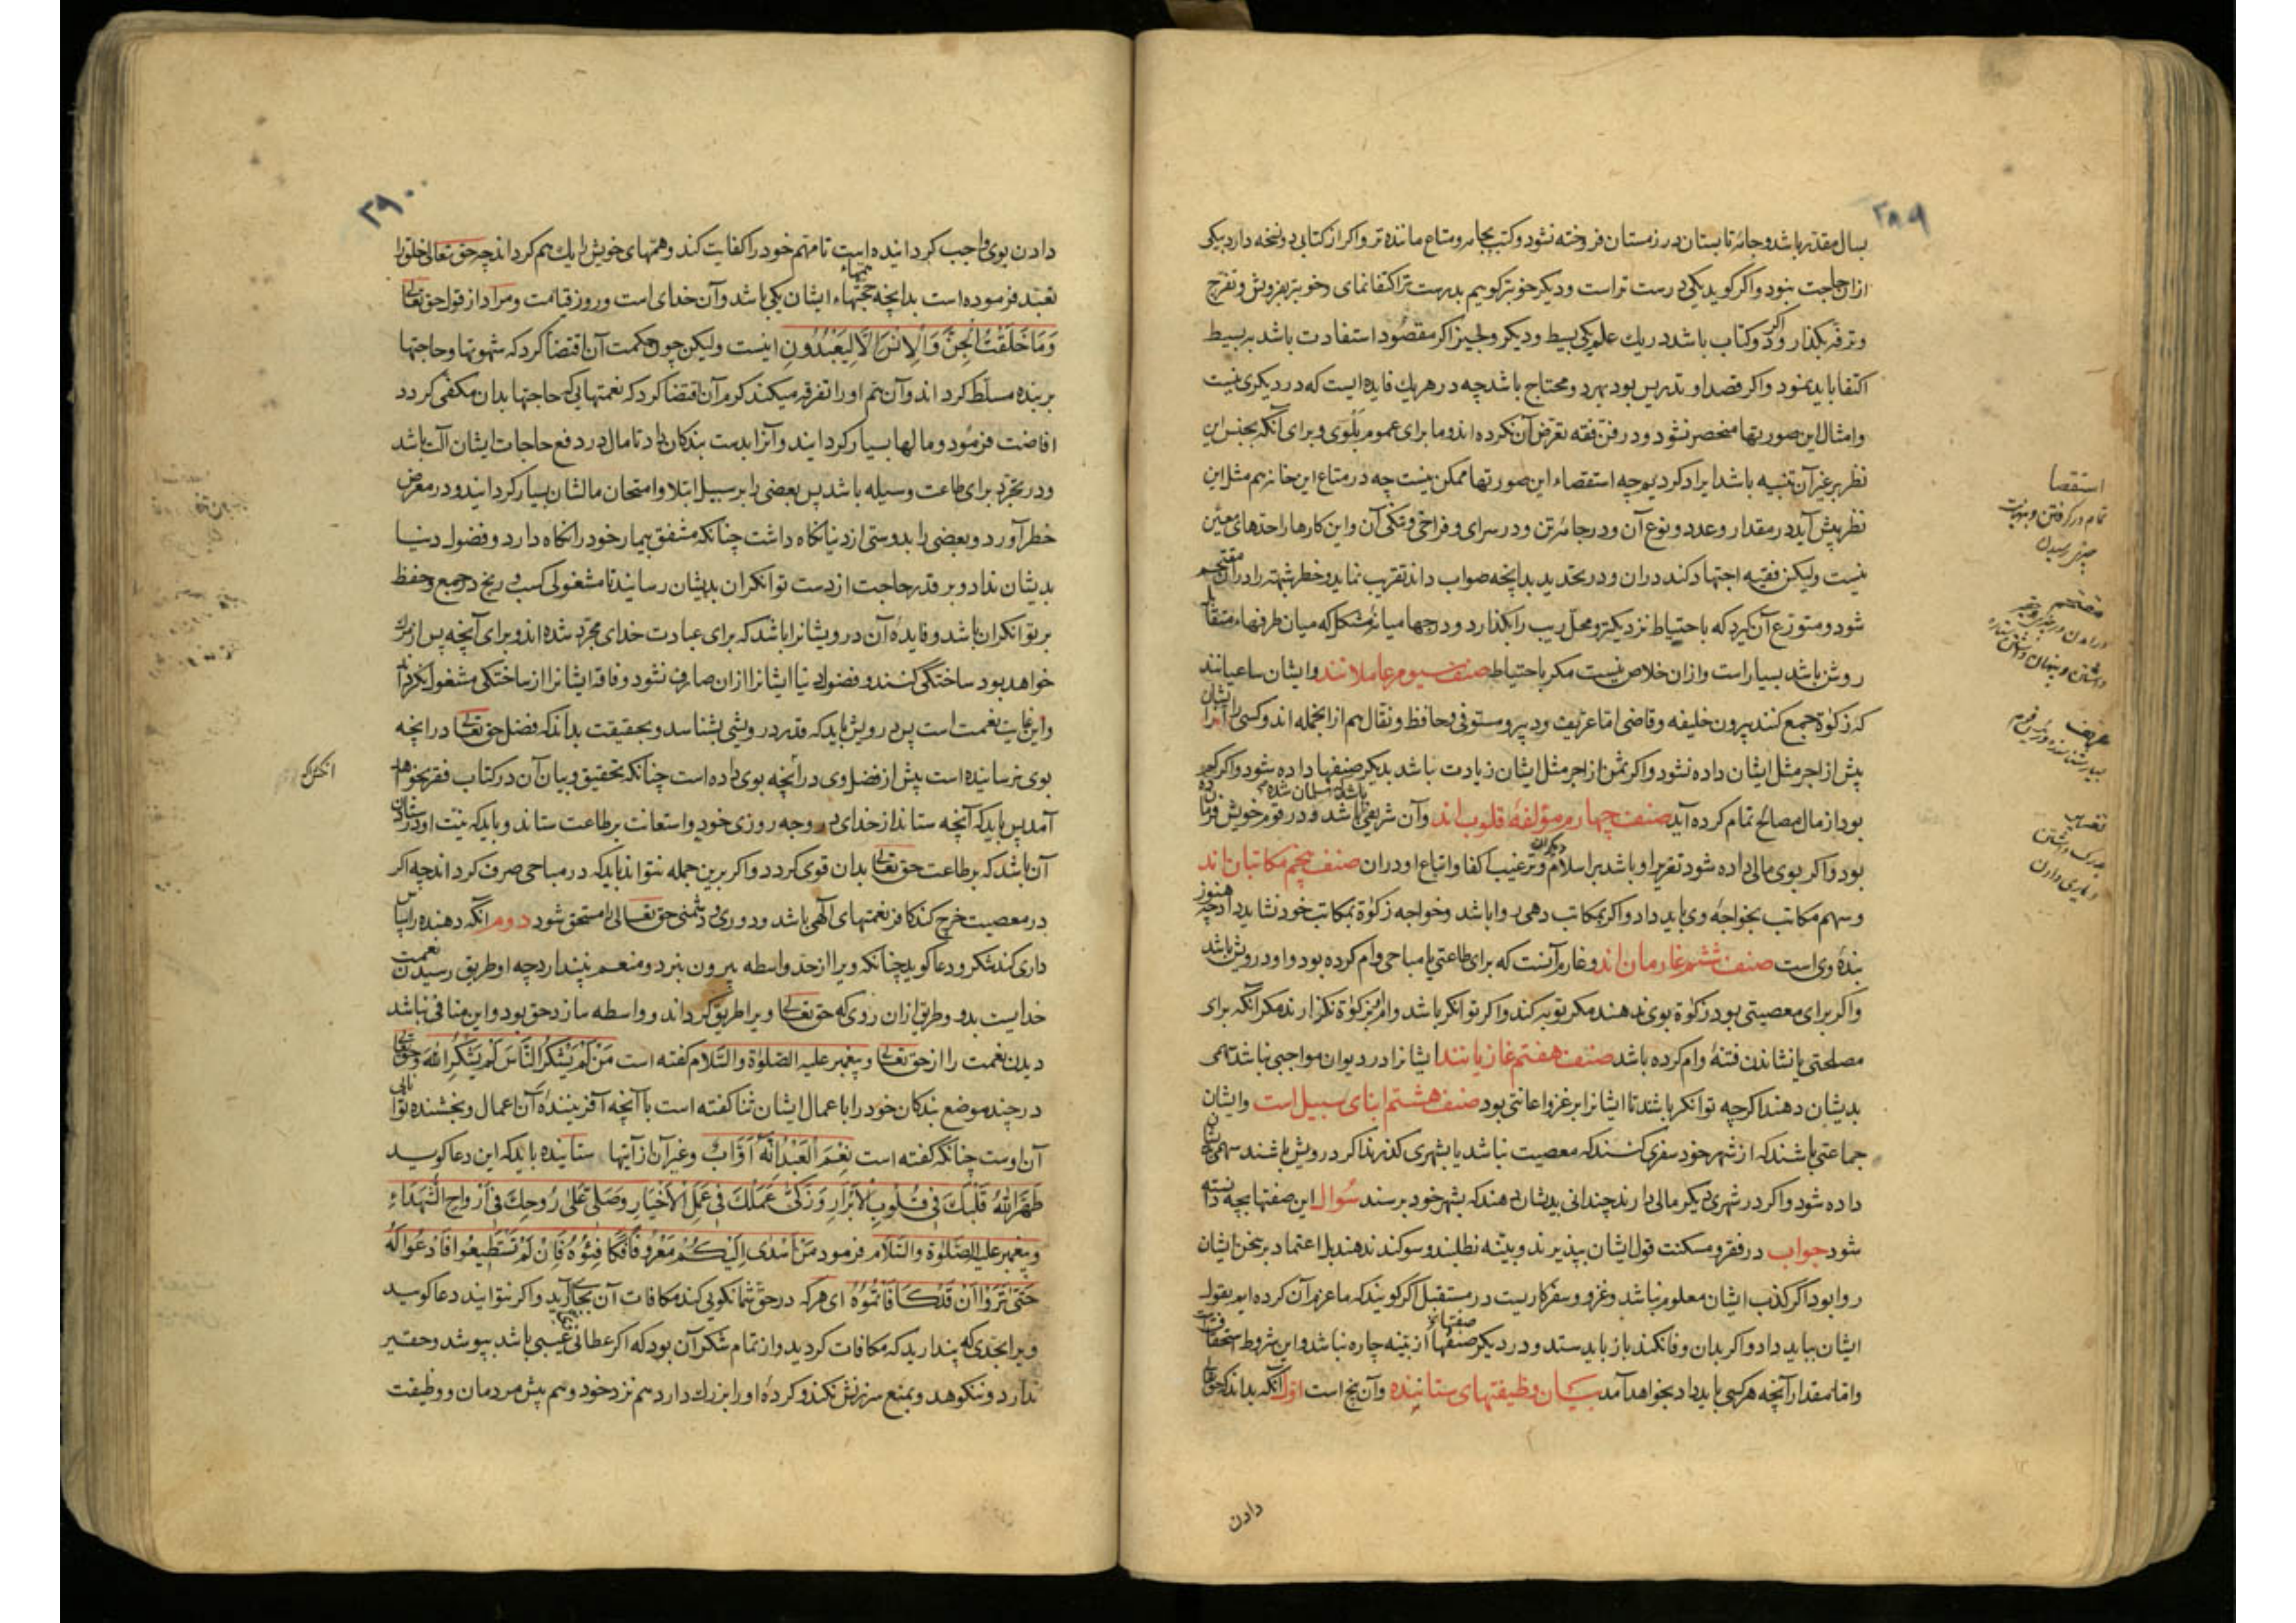 ۲۸۹
بسال مقدر باشد و جامهٔ تابستان در زمستان فروخته نشود و کتب بجامه و متاع ماننده تر و اکر از کتابی دو نسخه دارد بیکی
ازان حاجت نبود و اکر کوید یکی درست تر است و دیکر خوبتر کوییم بدرست تر اکتفا نمای و خوبتر بفروش و تفرج
و ترفه بکذار و اکر دو کتاب باشد در یك علم یکی بسیط و دیکر وجیز اکر مقصود استفادت باشد بر بسیط
اکتفا باید نمود و اکر قصد او تدریس بود بهر دو محتاج باشد چه در هر یك فایده ایست که در دیکری نیست
و امثال این صورتها منحصر نشود و در فن فقه تعرض آن نکرده اند و ما برای عموم بلوی و برای آنکه بجنس این
نظر بر غیر آن تنبیه باشد ایراد کردیم چه استقصاء این صورتها ممکن نیست چه در متاع این خانه هم مثل این
نظر پیش آید در مقدار و عدد و نوع آن و در جامهٔ تن و در سرای و فراخی و تنکی آن و این کارها را حدهای معین
نیست ولیکن فقیه اجتهاد کند دران و در تحدید بدانچه صواب داند تقریب نماید و خطر شبهتها را دران مقتحم
شود و متورع آن کیرد که باحتیاط نزدیکتر و محل ریب را بکذارد و درجها میانهٔ مشکل که میان طرفهاء متقابل
روشن باشد بسیار است و ازان خلاص نیست مکر باحتیاط صنف سیوم عاملانند و ایشان ساعیانند
که زکوة جمع کنند بیرون خلیفه و قاضی اما عریف و دبیر و مستوفی و حافظ و نقال هم ازانجمله اند و کسی را ازیشان
بیش از اجر مثل ایشان داده نشود و اکر ثمن از اجر مثل ایشان زیادت باشد بدیکر صنفها داده شود و اکر کم
بود از مال مصالح تمام کرده آید صنف چهارم مؤلفهٔ قلوب اند و آن شریفی باشد که مسلمان شده و در قوم خویش فرمان
بود و اکر بوی مالی داده شود تقریر او باشد بر اسلام و ترغیب اکفا و اتباع او دران صنف پنجم مکاتبان اند
و سهم مکاتب بخواجهٔ وی باید داد و اکر بمکاتب دهی روا باشد و خواجه زکوة بمکاتب خود نشاید داد چه هنوز
بندهٔ وی است صنف ششم غارمان اند و غارم آنست که برای طاعتی یا مباحی وام کرده بود و او درویش باشد
و اکر برای معصیتی بود زکوة بوی ندهند مکر توبه کند و اکر توانکر باشد وامش بزکوة نکزارند مکر آنکه برای
مصلحتی یا نشاندن فتنهٔ وام کرده باشد صنف هفتم غازیانند ایشانرا در دیوان مواجبی نباشد سهمی
بدیشان دهند اکرچه توانکر باشند تا ایشانرا بر غزو اعانتی بود صنف هشتم ابنای سبیل است و ایشان
جماعتی باشند که از شهر خود سفری کنند که معصیت نباشد یا بشهری کذرند اکر درویش باشند سهمی بدیشان
داده شود و اکر در شهری دیکر مالی دارند چندانی بدیشان دهند که بشهر خود برسند سؤال این صفتها بچه دانسته
شود جواب در فقر و مسکنت قول ایشان بپذیرند و بینه نطلبند و سوکند ندهند بل اعتماد بر سخن ایشان
روا بود اکر کذب ایشان معلوم نباشد و غزو و سفر کاریست در مستقبل اکر کویند که ما عزم آن کرده ایم بقول
ایشان بباید داد و اکر بدان وفا نکنند باز باید ستد و در دیکر صنفها از بینه چاره نباشد و این شروط استحقاق
و اما مقدار آنچه هر کسی را باید داد بخواهد آمد بیان وظیفتهای ستاننده و آن پنج است اول آنکه بداند که حق تعالی
دادن
استقصا
تمام در کرفتن و بنهایت
چیزی رسیدن
مقتحم
عریف
تقریب
۲۹۰
دادن بوی واجب کردانیده است تا مهم خود را کفایت کند و همتهای خویش را یك هم کرداند چه حق تعالی خلق را
تعبد فرموده است بدانچه همتهاء ایشان یکی باشد و آن خدای است و روز قیامت و مراد از قول حق تعالی
وَمَا خَلَقْتُ الْجِنَّ وَالْاِنْسَ اِلَّا لِيَعْبُدُونِ اینست ولیکن چون حکمت آن اقتضا کرد که شهوتها و حاجتها
بر بنده مسلط کردانند و آن هم او را تفرقه میکند کرم آن اقتضا کرد که نعمتهایی که حاجتها بدان مکفی کردد
افاضت فرمود و مالها بسیار کردانید و آنرا بدست بندکان داد تا مال در دفع حاجات ایشان آلت باشد
و در تجرد برای طاعت وسیله باشد پس بعضی را بر سبیل ابتلا و امتحان مالشان بسیار کردانید و در معرض
خطر آورد و بعضی را بدوستی از دنیا نکاه داشت چنانکه مشفق بیمار خود را نکاه دارد و فضول دنیا
بدیشان نداد و بر قدر حاجت از دست توانکران بدیشان رسانید تا مشغولی کسب و رنج در جمع و حفظ
بر توانکران باشد و فایدهٔ آن درویشانرا باشد که برای عبادت خدای مجرد شده اند و برای آنچه پس از مرك
خواهد بود ساختکی کنند و فضول دنیا ایشانرا ازان صارف نشود و فاقه ایشانرا از ساختکی مشغول نکرداند
و این غایت نعمت است پس درویش باید که قدر درویشی بشناسد و بحقیقت بداند که فضل حق تعالی در انچه
بوی نرسانیده است بیش از فضل وی در آنچه بوی داده است چنانکه تحقیق و بیان آن در کتاب فقر بخواهد
آمد پس باید که آنچه ستاند از خدای در وجه روزی خود و استعانت بر طاعت ستاند و باید که نیت او درستان
آن باشد که بر طاعت حق تعالی بدان قوی کردد و اکر برین جمله نتواند باید که در مباحی صرف کرداند چه اکر
در معصیت خرج کند کافر نعمتهای الهی باشد و دوری و دشمنی حق تعالی را مستحق شود دوم آنکه دهنده را سپاس
داری کند شکر و دعا کوید چنانکه ویرا از حد واسطه بیرون نبرد و منعم نپندارد چه او طریق رسیدن نعمت
خدایست بدو و طریق ازان روی که حق تعالی ویرا طریق کرداند و واسطه سازد حق بود و این منافی نباشد
دیدن نعمت را از حق تعالی و پیغمبر علیه الصلوة والسلام کفته است مَنْ لَمْ يَشْكُرِ النَّاسَ لَمْ يَشْكُرِ اللهَ و حق تعالی
در چند موضع بندکان خود را با عمال ایشان ثنا کفته است با آنچه آفرینندهٔ آن اعمال و بخشنده توانایی
آن اوست چنانکه کفته است نِعْمَ الْعَبْدُ اِنَّهُ اَوَّابٌ و غیر آن از آیتها ستاننده باید که این دعا کوید
طَهَّرَ اللهُ قَلْبَكَ فِي قُلُوبِ الْاَبْرَارِ وَزَكَّى عَمَلَكَ فِي عَمَلِ الْاَخْيَارِ وَصَلَّى عَلَى رُوحِكَ فِي اَرْوَاحِ الشُّهَدَاءِ
و پیغمبر علیه الصلوة والسلام فرمود مَنْ اَسْدَى اِلَيْكُمْ مَعْرُوفًا فَكَافِئُوهُ فَاِنْ لَمْ تَسْتَطِيعُوا فَادْعُوا لَهُ
حَتَّى تَرَوْا اَنْ قَدْ كَافَأْتُمُوهُ ای هر که در حق شما نکویی کند مکافات آن بجای آرید و اکر نتوانید دعا کوئید
ویرا بحدی که پندارید که مکافات کردید و از تمام شکر آن بود که اکر عطا را عیبی باشد بپوشد و حقیر
ندارد و ننکوهد و بمنع سرزنش نکند و کردهٔ او را بزرك دارد هم نزد خود و هم پیش مردمان و وظیفت